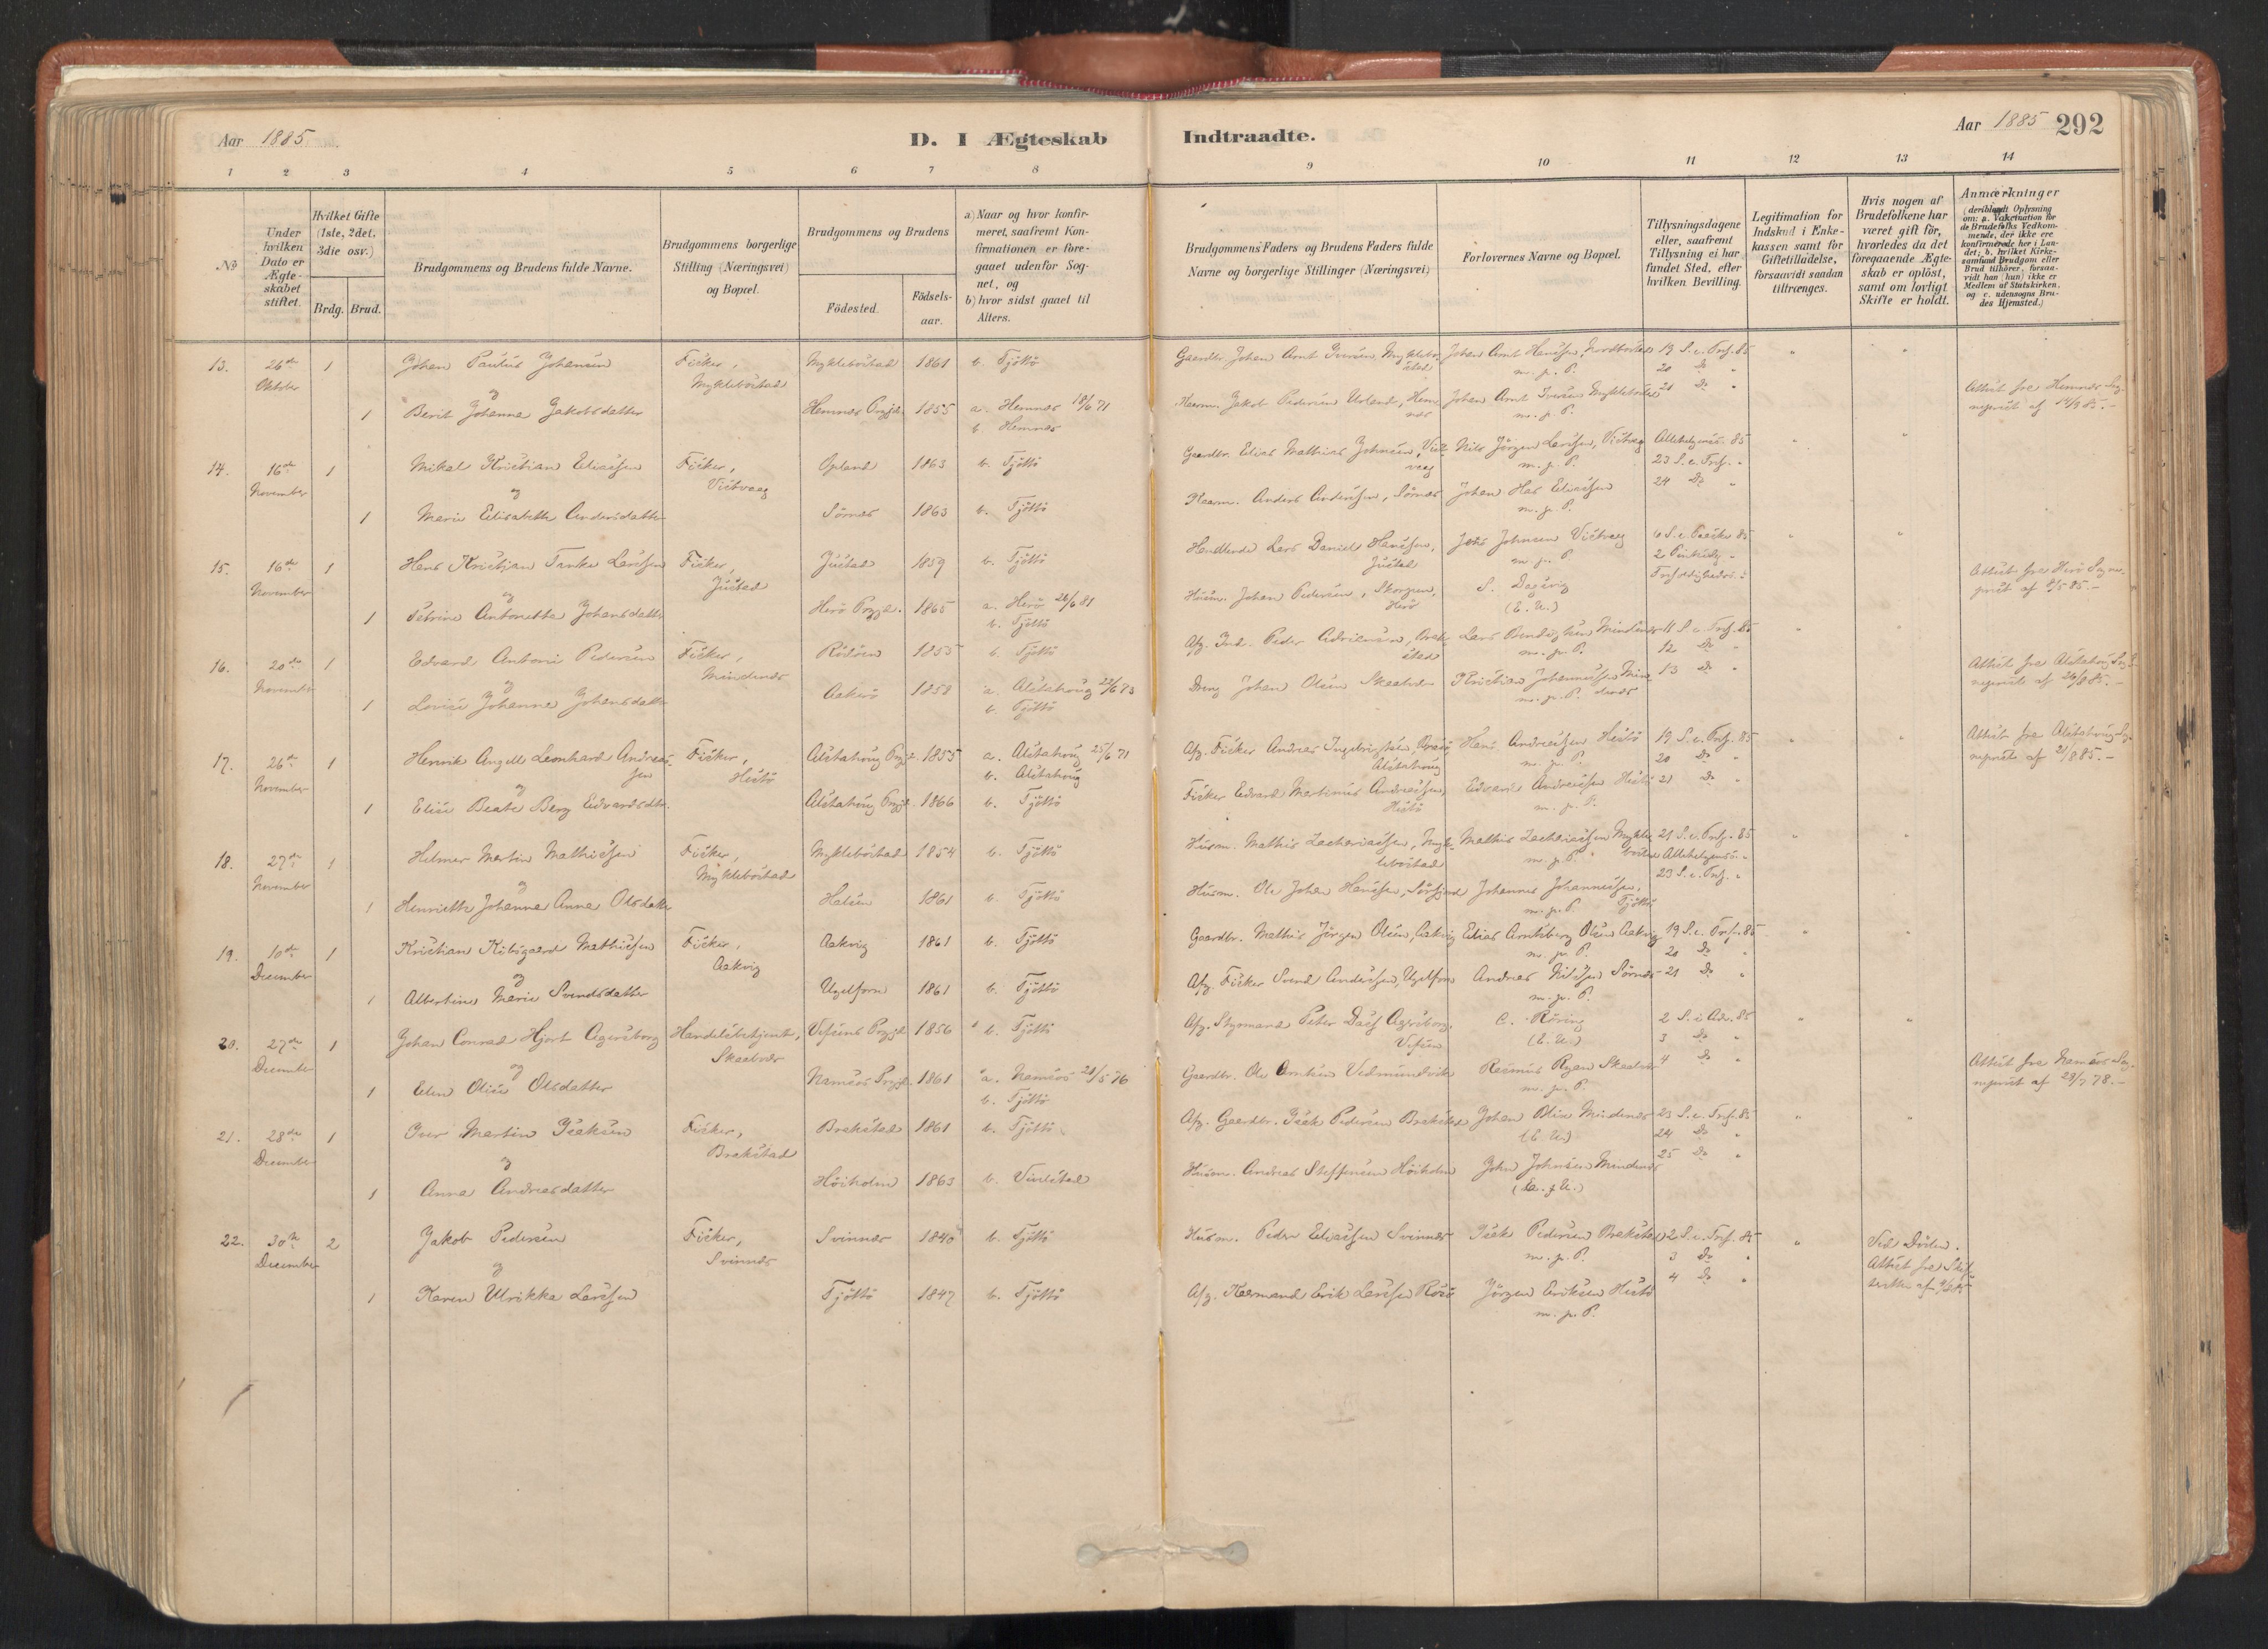 Aar 1885
D. I Ægteskab Indtraadte.
Aar 1885 292
1 2 3 4 5 6 7 8 9 10 11 12 13 14
No
Under hvilken Dato er Ægteskabet stiftet.
Hvilket Gifte (1ste, 2det, 3die osv.)
Brdg. Brud.
Brudgommens og Brudens fulde Navne.
Brudgommens borgerlige Stilling (Næringsvei) og Bopæl.
Brudgommens og Brudens
Födested.
Födselsaar.
a) Naar og hvor konfirmeret, saafremt Konfirmationen er foregaaet udenfor Sognet, og
b) hvor sidst gaaet til Alters.
Brudgommens Faders og Brudens Faders fulde Navne og borgerlige Stillinger (Næringsvei)
Forlovernes Navne og Bopæl.
Tillysningsdagene eller, saafremt Tillysning ei har fundet Sted, efter hvilken Bevilling.
Legitimation for Indskud i Enkekassen samt for Giftetilladelse, forsaavidt saadan tiltrænges.
Hvis nogen af Brudefolkene har været gift för, hvorledes da det foregaaende Ægteskab er oplöst, samt om lovligt Skifte er holdt.
Anmærkninger
(deriblandt Oplysning om: a. Vakcination for de Brudefolks Vedkommende, der ikke ere konfirmerede her i Landet; b. hvilket Kirkesamfund Brudgom eller Brud tilhörer, forsaavidt han (hun) ikke er Medlem af Statskirken, og c. udensogns Brudes Hjemsted.)
13. 26de Oktober 1 Johan Paulus Johansen Fisker, Myklebostad Myklebostad 1861 b. Tjöttö Gaardbr. Johan Arnt Iversen, Myklebostad Johan Arnt Hansen, m. p. P. 19 S. e. Tref. 85
20 Do "
og
1 Berit Johanna Jakobsdatter Hemnæs Prgjd. 1855 a. Hemnæs 18/6 71 b. Hemnæs Jakob Pedersen Hemnæs Johan Arnt Iversen Myklebostad m. p. P. 21 Do " Attest fra Hemnæs Sogneprest af 14/9 85.-
14. 16de November 1 Mikal Kristian Eliassen Fisker, Vistvaag Opland 1863 b. Tjöttö Gaardbr. Elias Mathias Johnsen, Vistvaag Nils Jörgen Larssen, Vistvag m. p. P. Allehelgens. 85
23 S. e. Tref. "
og
1 Marie Elisabeth Andersdatter Sörnæs 1863 b. Tjöttö Anders Anderssen, Sörnæs Johan Eliassen m. p. P. 24 Do "
15. 16de November 1 Hans Kristian Tanke Larssen Fisker, Justad Justad 1859 b. Tjöttö Handlende Lars Daniel Hanssen, Justad Johnsen Vistvaag m. p. P. 6 S. e. Paaske 85
2 Pintsedg "
og
1 Petrine Antonette Johansdatter Herö Prgjd. 1865 a. Herö 26/6 81 b. Tjöttö Husm. Johan Pedersen, Herö S. Dagsvig (E. U.) Trefoldigheds. " Attest fra Herö Sogneprest af 8/5 85.-
16. 20de November 1 Edvard Antoni Pedersen Fisker, Mindenæs Rödöen 1855 b. Tjöttö Peder Adriansen, Brakstad Lars Bendigtsen Mindenæs m. p. P. 11 S. e. Tref. 85
12 Do "
og
1 Lovise Johanna Johansdatter Aakerö 1858 a. Alstahoug 22/6 73 b. Tjöttö Dreng Johan Olsen Skaalvær Kristian Johannessen Mindenæs m. p. P. 13 Do " Attest fra Alstahoug Sogneprest af 26/8 85.-
17. 26de November 1 Henrik Angell Leonhard Andreassen Fisker, Hestö Alstahoug Prgjd. 1855 a. Alstahoug 25/6 71 b. Alstahoug Afg. Fisker Andreas Ingebrigtsen, Alstahoug Hans Andreassen Hestö m. p. P. 19 S. e. Tref. 85
20 Do " Attest fra Alstahoug Sogneprest af 31/8 85.-
og
1 Elise Beate Berg Edvardsdtr. Alstahoug Prgjd. 1866 b. Tjöttö Fisker Edvard Martinus Andreassen, Hestö Edvard Andreassen Hestö m. p. P. 21 Do "
18. 27de November 1 Helmer Martin Mathissen Fisker, Myklebostad Myklebostad 1854 b. Tjöttö Husm. Mathis Zachariassen, Myklebostad Mathis Zachariassen Myklebostad m. p. P. 21 S. e. Tref. 85
Allehelgens. "
og
1 Henriette Johanna Anna Olsdatter Halsen 1861 b. Tjöttö Husm. Ole Johan Hanssen, Sörfjord Johannes Johannessen, Tjöttö m. p. P. 23 S. e. Tref. "
19. 10de December 1 Kristian Kilsgaard Mathissen Fisker, Aakvig Aakvig 1861 b. Tjöttö Gaardbr. Mathis Jörgen Olsen, Aakvig Elias Arntsberg Olsen Aakvig m. p. P. 19 S. e. Tref. 85
20 Do "
og
1 Albertine Marie Svendsdatter Ugelforn 1861 b. Tjöttö Afg. Fisker Svend Anderssen, Ugelforn Andreas Nilssen Sörnæs m. p. P. 21 Do "
20. 27de December 1 Johan Conrad Hjort Agersborg Handelsbetjent, Skaalvær Vefsens Prgjd. 1856 b. Tjöttö Afg. Styrmand Peter Dass Agersborg, Vefsen C. Röring (E. U.) 2 S. i Adv. 85
3 Do "
og
1 Elen Olise Olsdatter Namsos Prgjd. 1861 a. Namsos 21/5 76 b. Tjöttö Gaardbr. Ole Arntsen Vedmundvik Rasmus Ryan Skaalvær m. p. P. 4 Do " Attest fra Namsos Sogneprest af 23/7 78.-
21. 28de December 1 Iver Martin Isaksen Fisker, Brakstad Brakstad 1861 b. Tjöttö Afg. Gaardbr. Isak Pedersen Brakstad Johan Blix Mindenæs (E. U.) 23 S. e. Tref. 85
24 Do "
og
1 Anna Andreasdatter Höiholm 1863 b. Vivelstad Husm. Andreas Steffensen Höiholm John Johnsen Mindenæs 25 Do "
22. 30te December 2 Jakob Pedersen Fisker, Svinnæs Svinnæs 1840 b. Tjöttö Husm. Peder Eliassen Svinnæs Isak Pedersen Brakstad m. p. P. 2 S. e. Tref. 85
3 Do " Ved Döden. Attest fra Skifteretten af
og
1 Karen Ulrikka Larssen Tjöttö 1847 b. Tjöttö Afg. Kaarmand Erik Larssen Rosö Jörgen Eriksen Hestö m. p. P. 4 Do "